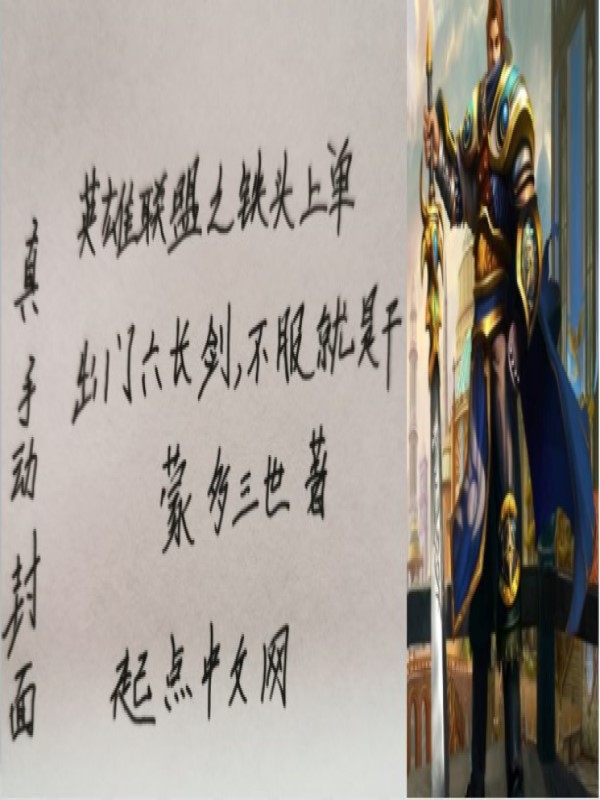 英雄联盟之铁头上单
出门六长剑,不服就是干
蒙多三世著
起点中文网
真手动封面